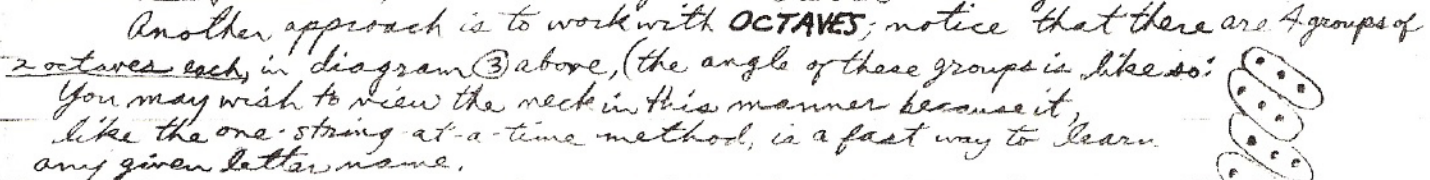 Another approach is to work with OCTAVES; notice that there are 4 groups of
2 octaves each, in diagram ③ above, (the angle of these groups is like so:
You may wish to view the neck in this manner because it,
like the one-string-at-a-time method, is a fast way to learn
any given letter name.